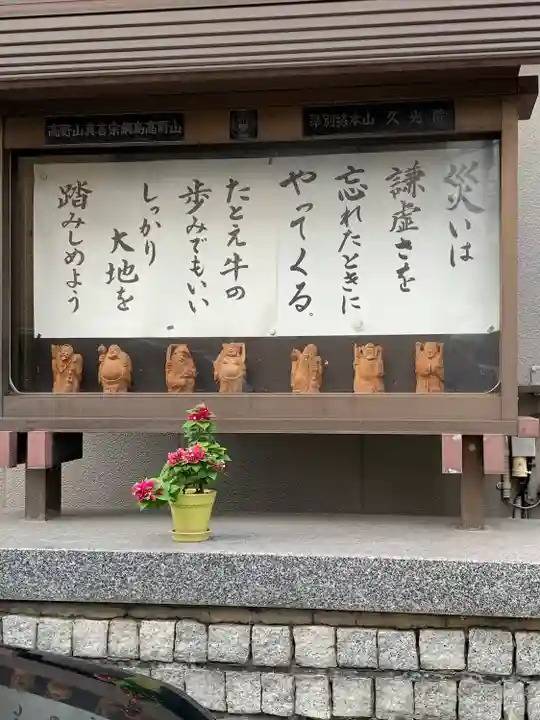 災いは
謙虚さを
忘れたときに
やってくる。
たとえ牛の
歩みでもいい
しっかり
大地を
踏みしめよう
高野山真言宗網島高野山
準別格本山 久光院